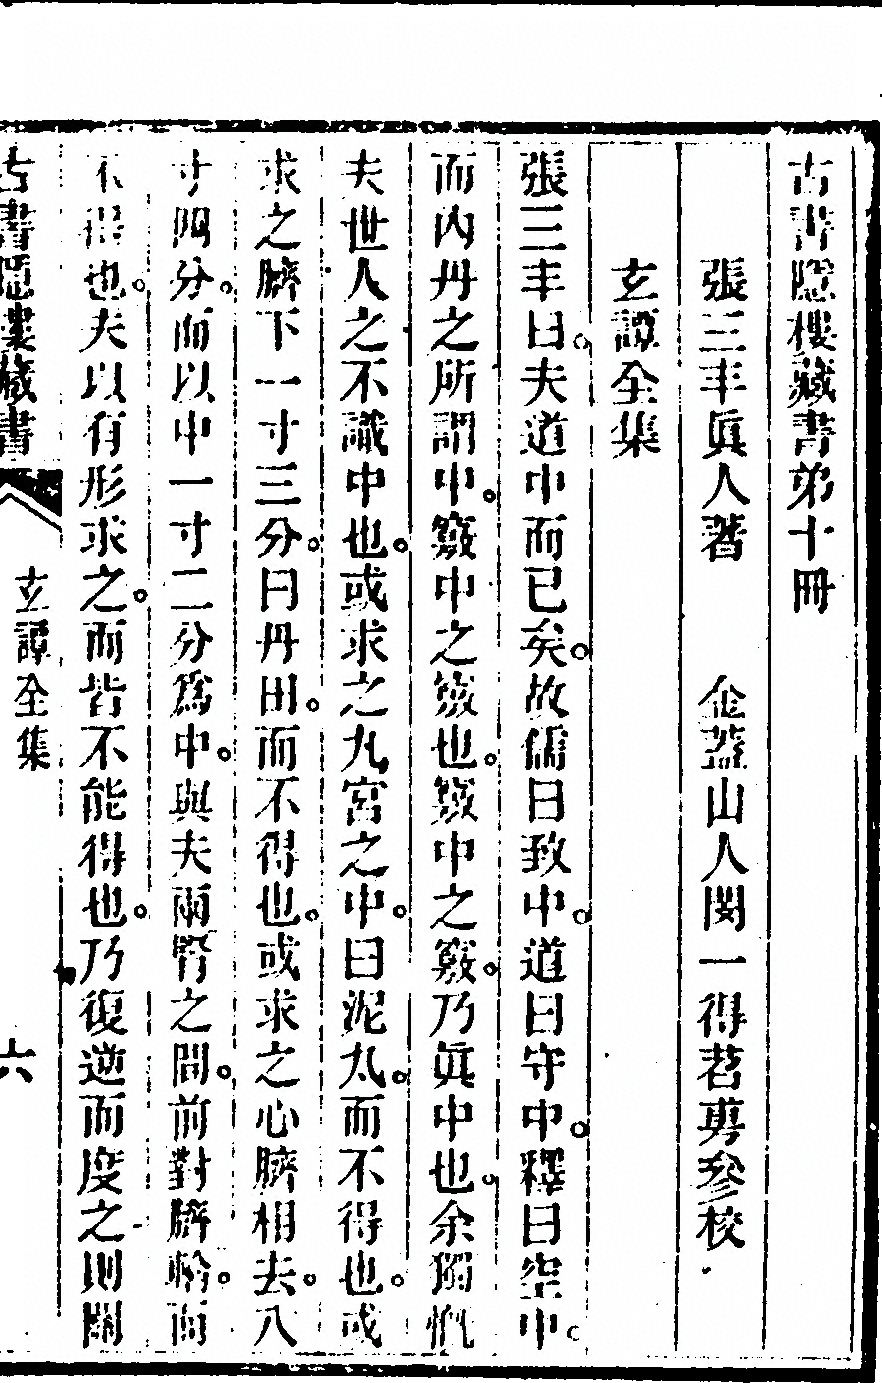 古書隱樓藏書弟十冊
張三丰眞人著 金蓋山人閔一得苕旉參校
玄譚全集
張三丰曰。夫道中而已矣。故儒曰致中。道曰守中。釋曰空中。
而內丹之所謂中。竅中之竅也。竅中之竅。乃眞中也。余獨慨
夫世人之不識中也。或求之九宮之中。曰泥丸。而不得也。或
求之臍下一寸三分。曰丹田。而不得也。或求之心臍相去。八
寸四分。而以中一寸二分爲中。與夫兩腎之間。前對臍輪。而
不得也。夫以有形求之。而皆不能得也。乃復逆而度之則關
古書隱樓藏書 玄譚全集 六